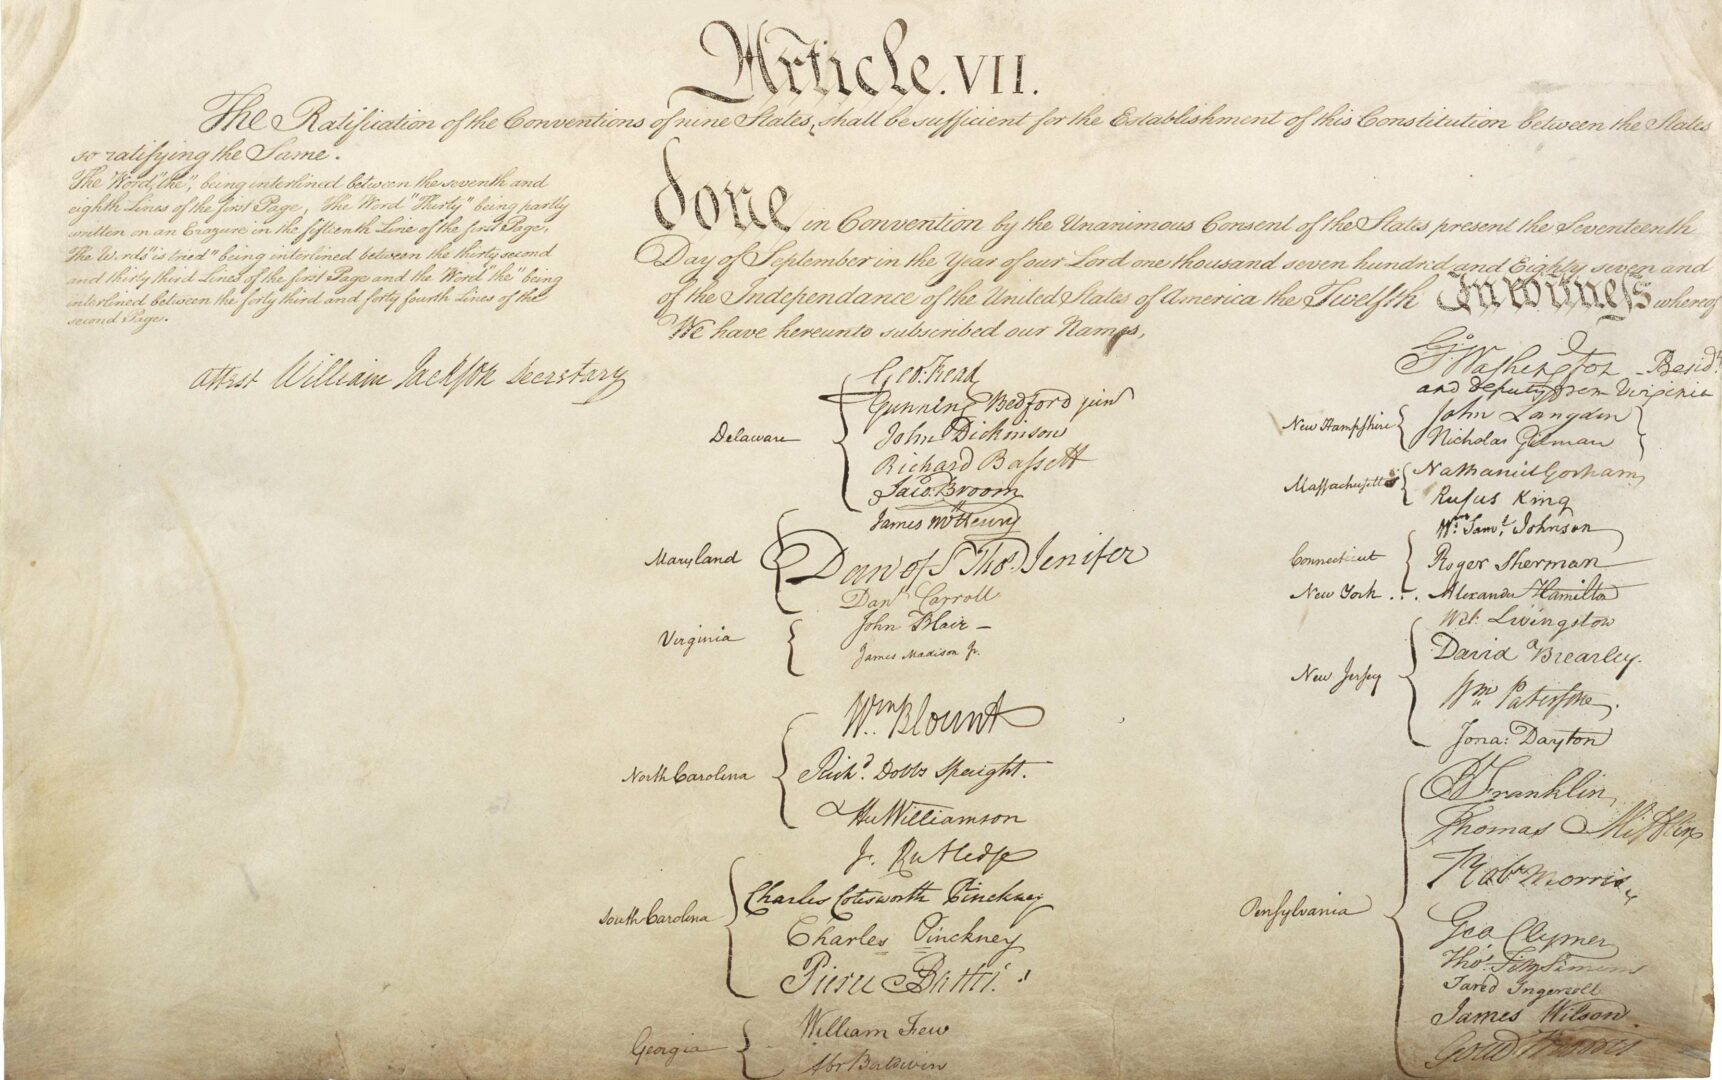 Article. VII.
The Ratification of the Conventions of nine States, shall be sufficient for the Establishment of this Constitution between the States
so ratifying the Same.
The Word, "the", being interlined between the seventh and
eighth Lines of the first Page, The Word "Thirty" being partly
written on an Erazure in the fifteenth Line of the first Page,
The Words "is tried" being interlined between the thirty second
and thirty third Lines of the first Page and the Word "the" being
interlined between the forty third and forty fourth Lines of the
second Page.
Attest William Jackson Secretary
done in Convention by the Unanimous Consent of the States present the Seventeenth
Day of September in the Year of our Lord one thousand seven hundred and Eighty seven and
of the Independance of the United States of America the Twelfth In Witness whereof
We have hereunto subscribed our Names,
Delaware
Geo: Read
Gunning Bedford jun
John Dickinson
Richard Bassett
Jaco: Broom
Maryland
James McHenry
Dan of St Thos. Jenifer
Danl Carroll
Virginia
John Blair —
James Madison Jr.
North Carolina
Wm. Blount
Richd. Dobbs Spaight.
Hu Williamson
South Carolina
J. Rutledge
Charles Cotesworth Pinckney
Charles Pinckney
Pierce Butler.
Georgia
William Few
Abr Baldwin
Go. Washington - Presidt.
and deputy from Virginia
New Hampshire
John Langdon
Nicholas Gilman
Massachusetts
Nathaniel Gorham
Rufus King
Connecticut
Wm. Saml. Johnson
Roger Sherman
New York . . .
Alexander Hamilton
New Jersey
Wil: Livingston
David Brearley.
Wm. Paterson.
Jona: Dayton
Pensylvania
B Franklin
Thomas Mifflin
Robt Morris
Geo. Clymer
Thos. FitzSimons
Jared Ingersoll
James Wilson.
Gouv Morris